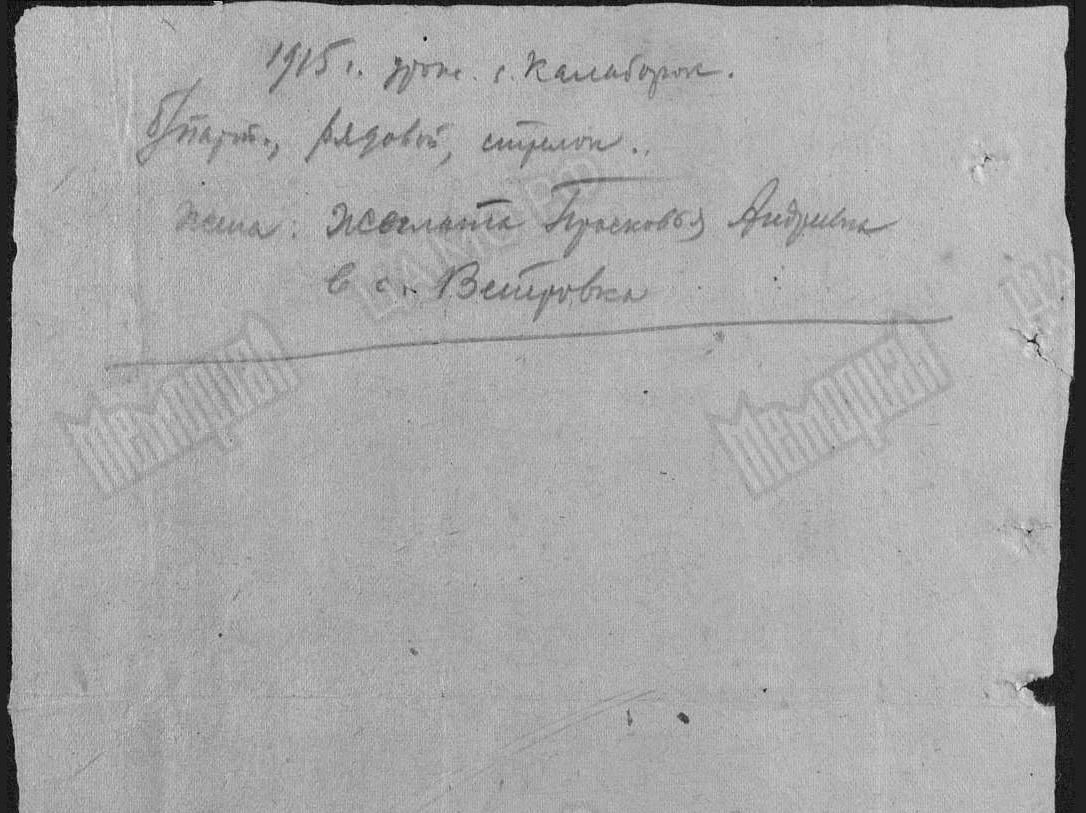 1915 г. урож. с. Калаборок.
б/парт., рядовой, стрелок.
жена: Прасковья Андреевна
в с. Ветровка
ЦАМО РФ
Мемориал
Мемориал
ЦА